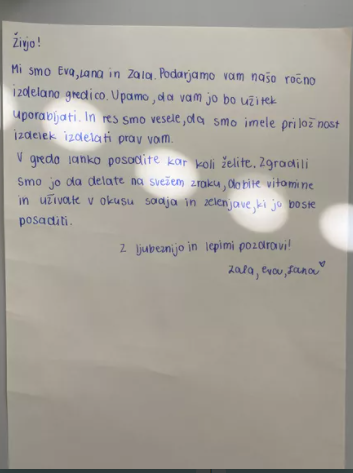 Živjo!
Mi smo Eva, Lana in Zala. Podarjamo vam našo ročno
izdelano gredico. Upamo, da vam jo bo užitek
uporabljati. In res smo vesele, da smo imele priložnost
izdelek izdelati prav vam.
V gredo lahko posadite kar koli želite. Zgradili
smo jo da delate na svežem zraku, dobite vitamine
in uživate v okusu sadja in zelenjave, ki jo boste
posaditi.
Z ljubeznijo in lepimi pozdravi!
Zala, Eva, Lana